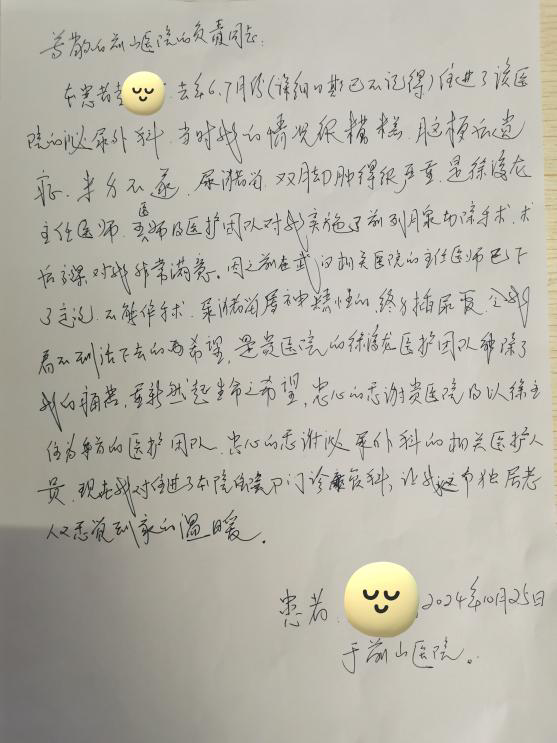 尊敬的前山医院的负责同志:
本患者李 去年6.7月份(详细日期已不记得)住进了该医
院的泌尿外科,当时我的情况很糟糕,脑梗后遗
症,半身不遂,尿潴留,双脚肿得很严重,是徐渡龙
主任医师 医师及医护团队对我实施了前列腺切除手术,术
后效果对我非常满意。因之前在武汉相关医院的主任医师已下
了定论,不能作手术,尿潴留属于神经性的,终身插尿管,令我
看不到活下去的希望,是贵医院的徐渡龙医护团队解除了
我的痛苦,重新燃起生命之希望,忠心的感谢贵医院及以徐主
任为首的医护团队,忠心的感谢泌尿外科的相关医护人
员,现在我又住进了本院 门诊康复科,让我这个独居老
人又感觉到家的温暖。
患者 2024年10月25日
于前山医院。